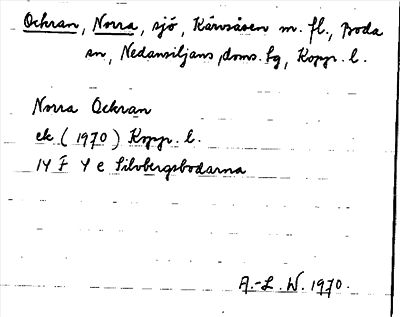 Ockran, Norra, sjö, Kårvsåsen m. fl., Boda
sn, Nedansiljans doms. lg, Kopp. l.
Norra Ockran
ek (1970) Kopp. l.
14 F 4 e Silvbergsbodarna
A.-L. W. 1970.